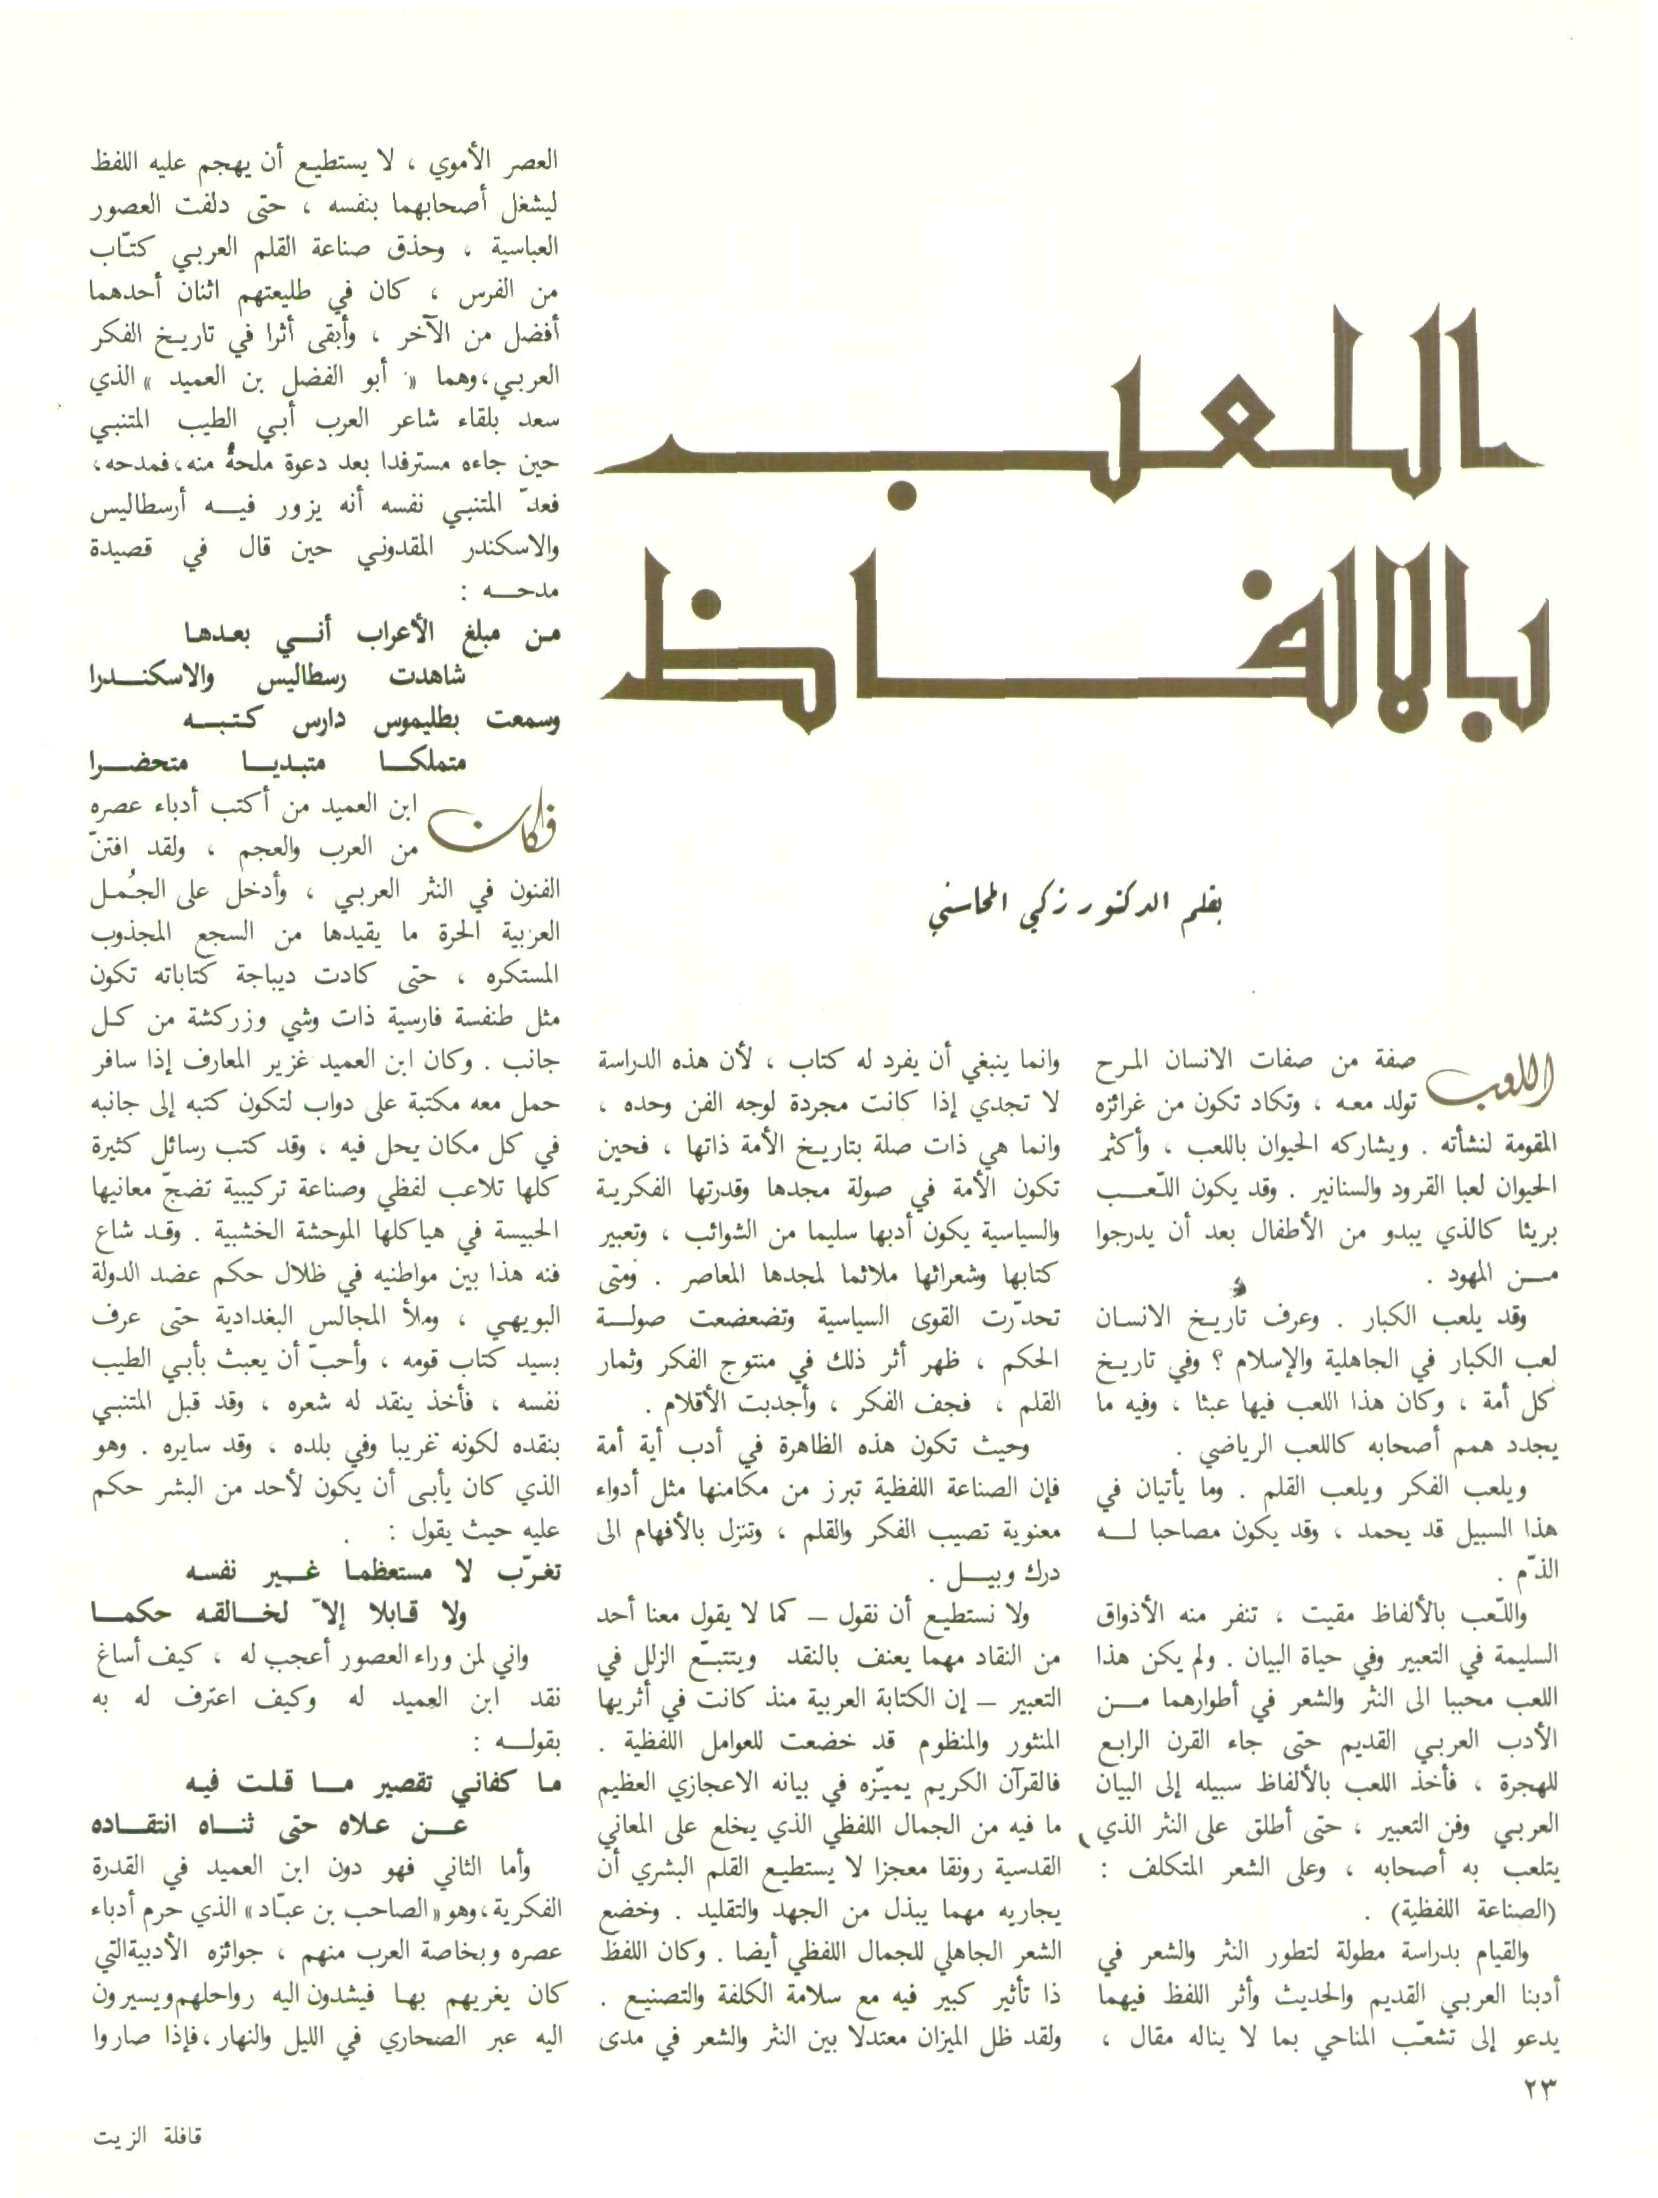 اللعب
بالالفاظ
بقلم الدكتور زكي المحاسني
اللعب صفة من صفات الانسان المرح
تولد معه ، وتكاد تكون من غرائزه
المقومة لنشأته . ويشاركه الحيوان باللعب ، وأكثر
الحيوان لعبا القرود والسنانير . وقد يكون اللّعب
بريئا كالذي يبدو من الأطفال بعد أن يدرجوا
من المهود .
وقد يلعب الكبار . وعرف تاريخ الانسان
لعب الكبار في الجاهلية والإسلام ؟ وفي تاريخ
كل أمة ، وكان هذا اللعب فيها عبثا ، وفيه ما
يجدد همم أصحابه كاللعب الرياضي .
ويلعب الفكر ويلعب القلم . وما يأتيان في
هذا السبيل قد يحمد ، وقد يكون مصاحبا له
الذمّ .
واللّعب بالألفاظ مقيت ، تنفر منه الأذواق
السليمة في التعبير وفي حياة البيان . ولم يكن هذا
اللعب محببا الى النثر والشعر في أطوارهما من
الأدب العربي القديم حتى جاء القرن الرابع
للهجرة ، فأخذ اللعب بالألفاظ سبيله إلى البيان
العربي وفن التعبير ، حتى أطلق على النثر الذي
يتلعب به أصحابه ، وعلى الشعر المتكلف :
(الصناعة اللفظية) .
والقيام بدراسة مطولة لتطور النثر والشعر في
أدبنا العربي القديم والحديث وأثر اللفظ فيهما
يدعو إلى تشعّب المناحي بما لا يناله مقال ،
وانما ينبغي أن يفرد له كتاب ، لأن هذه الدراسة
لا تجدي إذا كانت مجردة لوجه الفن وحده ،
وانما هي ذات صلة بتاريخ الأمة ذاتها ، فحين
تكون الأمة في صولة مجدها وقدرتها الفكرية
والسياسية يكون أدبها سليما من الشوائب ، وتعبير
كتابها وشعرائها ملائما لمجدها المعاصر . ومتى
تحدّرت القوى السياسية وتضعضعت صولة
الحكم ، ظهر أثر ذلك في منتوج الفكر وثمار
القلم ، فجف الفكر ، وأجدبت الأقلام .
وحيث تكون هذه الظاهرة في أدب أية أمة
فإن الصناعة اللفظية تبرز من مكامنها مثل أدواء
معنوية تصيب الفكر والقلم ، وتنزل بالأفهام الى
درك وبيل .
ولا نستطيع أن نقول – كما لا يقول معنا أحد
من النقاد مهما يعنف بالنقد ويتتبّع الزلل في
التعبير – إن الكتابة العربية منذ كانت في أثريها
المنثور والمنظوم قد خضعت للعوامل اللفظية .
فالقرآن الكريم يميّزه في بيانه الاعجازي العظيم
ما فيه من الجمال اللفظي الذي يخلع على المعاني
القدسية رونقا معجزا لا يستطيع القلم البشري أن
يجاريه مهما يبذل من الجهد والتقليد . وخضع
الشعر الجاهلي للجمال اللفظي أيضا . وكان اللفظ
ذا تأثير كبير فيه مع سلامة الكلفة والتصنيع .
ولقد ظل الميزان معتدلا بين النثر والشعر في مدى
العصر الأموي ، لا يستطيع أن يهجم عليه اللفظ
ليشغل أصحابهما بنفسه ، حتى دلفت العصور
العباسية ، وحذق صناعة القلم العربي كتّاب
من الفرس ، كان في طليعتهم اثنان أحدهما
أفضل من الآخر ، وأبقى أثرا في تاريخ الفكر
العربي ، وهما « أبو الفضل بن العميد » الذي
سعد بلقاء شاعر العرب أبي الطيب المتنبي
حين جاءه مسترفدا بعد دعوة ملحة منه ، فمدحه ،
فعدّ المتنبي نفسه أنه يزور فيه أرسطاليس
والاسكندر المقدوني حين قال في قصيدة
مدحه :
من مبلغ الأعراب أني بعدها
شاهدت رسطاليس والاسكندرا
وسمعت بطليموس دارس كتبه
متملكا متبديا متحضرا
فكان ابن العميد من أكتب أدباء عصره
من العرب والعجم ، ولقد افتنّ
الفنون في النثر العربي ، وأدخل على الجُمل
العربية الحرة ما يقيدها من السجع المجذوب
المستكره ، حتى كادت ديباجة كتاباته تكون
مثل طنفسة فارسية ذات وشي وزركشة من كل
جانب . وكان ابن العميد غزير المعارف إذا سافر
حمل معه مكتبة على دواب لتكون كتبه إلى جانبه
في كل مكان يحل فيه ، وقد كتب رسائل كثيرة
كلها تلاعب لفظي وصناعة تركيبية تضجّ معانيها
الحبيسة في هياكلها الموحشة الخشبية . وقد شاع
فنه هذا بين مواطنيه في ظلال حكم عضد الدولة
البويهي ، وملأ المجالس البغدادية حتى عرف
بسيد كتاب قومه ، وأحبّ أن يعبث بأبي الطيب
نفسه ، فأخذ ينقد له شعره ، وقد قبل المتنبي
بنقده لكونه غريبا وفي بلده ، وقد سايره . وهو
الذي كان يأبى أن يكون لأحد من البشر حكم
عليه حيث يقول :
تغرّب لا مستعظما غير نفسه
ولا قابلا إلاّ لخالقه حكما
واني لمن وراء العصور أعجب له ، كيف أساغ
نقد ابن العميد له وكيف اعترف له به
بقوله :
ما كفاني تقصير ما قلت فيه
عن علاه حتى ثناه انتقاده
وأما الثاني فهو دون ابن العميد في القدرة
الفكرية ، وهو « الصاحب بن عبّاد » الذي حرم أدباء
عصره وبخاصة العرب منهم ، جوائزه الأدبية التي
كان يغريهم بها فيشدون اليه رواحلهم ويسيرون
اليه عبر الصحاري في الليل والنهار ، فإذا صاروا
٢٣
قافلة الزيت